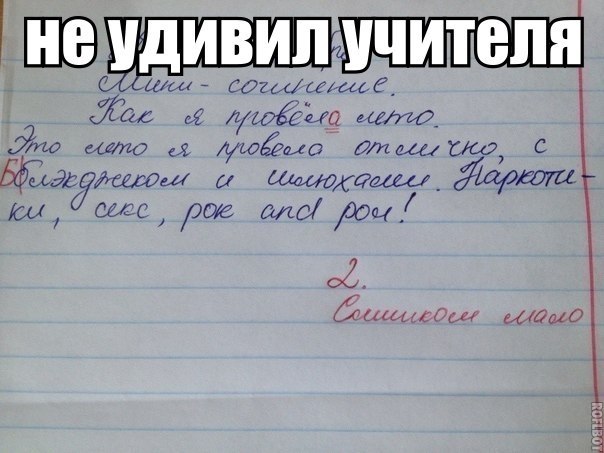 не удивил учителя
Мини-сочинение.
Как я провела лето.
Это лето я провела отлично, с
Блэкджеком и шлюхами. Наркоти-
ки, секс, рок and рол!
2.
Слишком мало
ROFLBOT